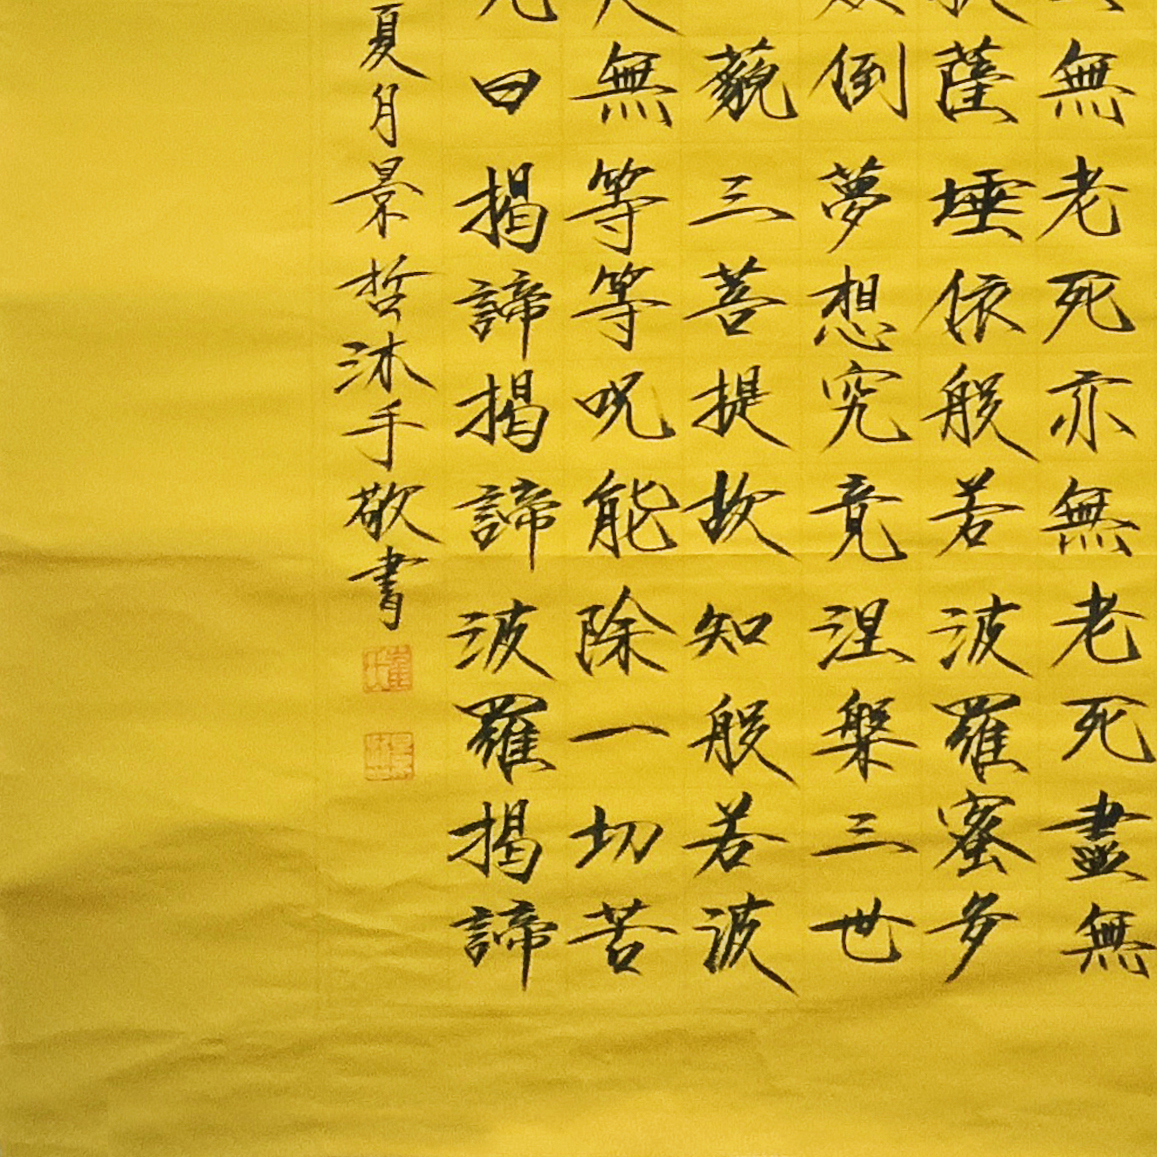 無老死亦無老死盡無
薩埵依般若波羅蜜多
倒夢想究竟涅槃三世
藐三菩提故知般若波
無等等呪能除一切苦
曰揭諦揭諦波羅揭諦
夏月景哲沐手敬書